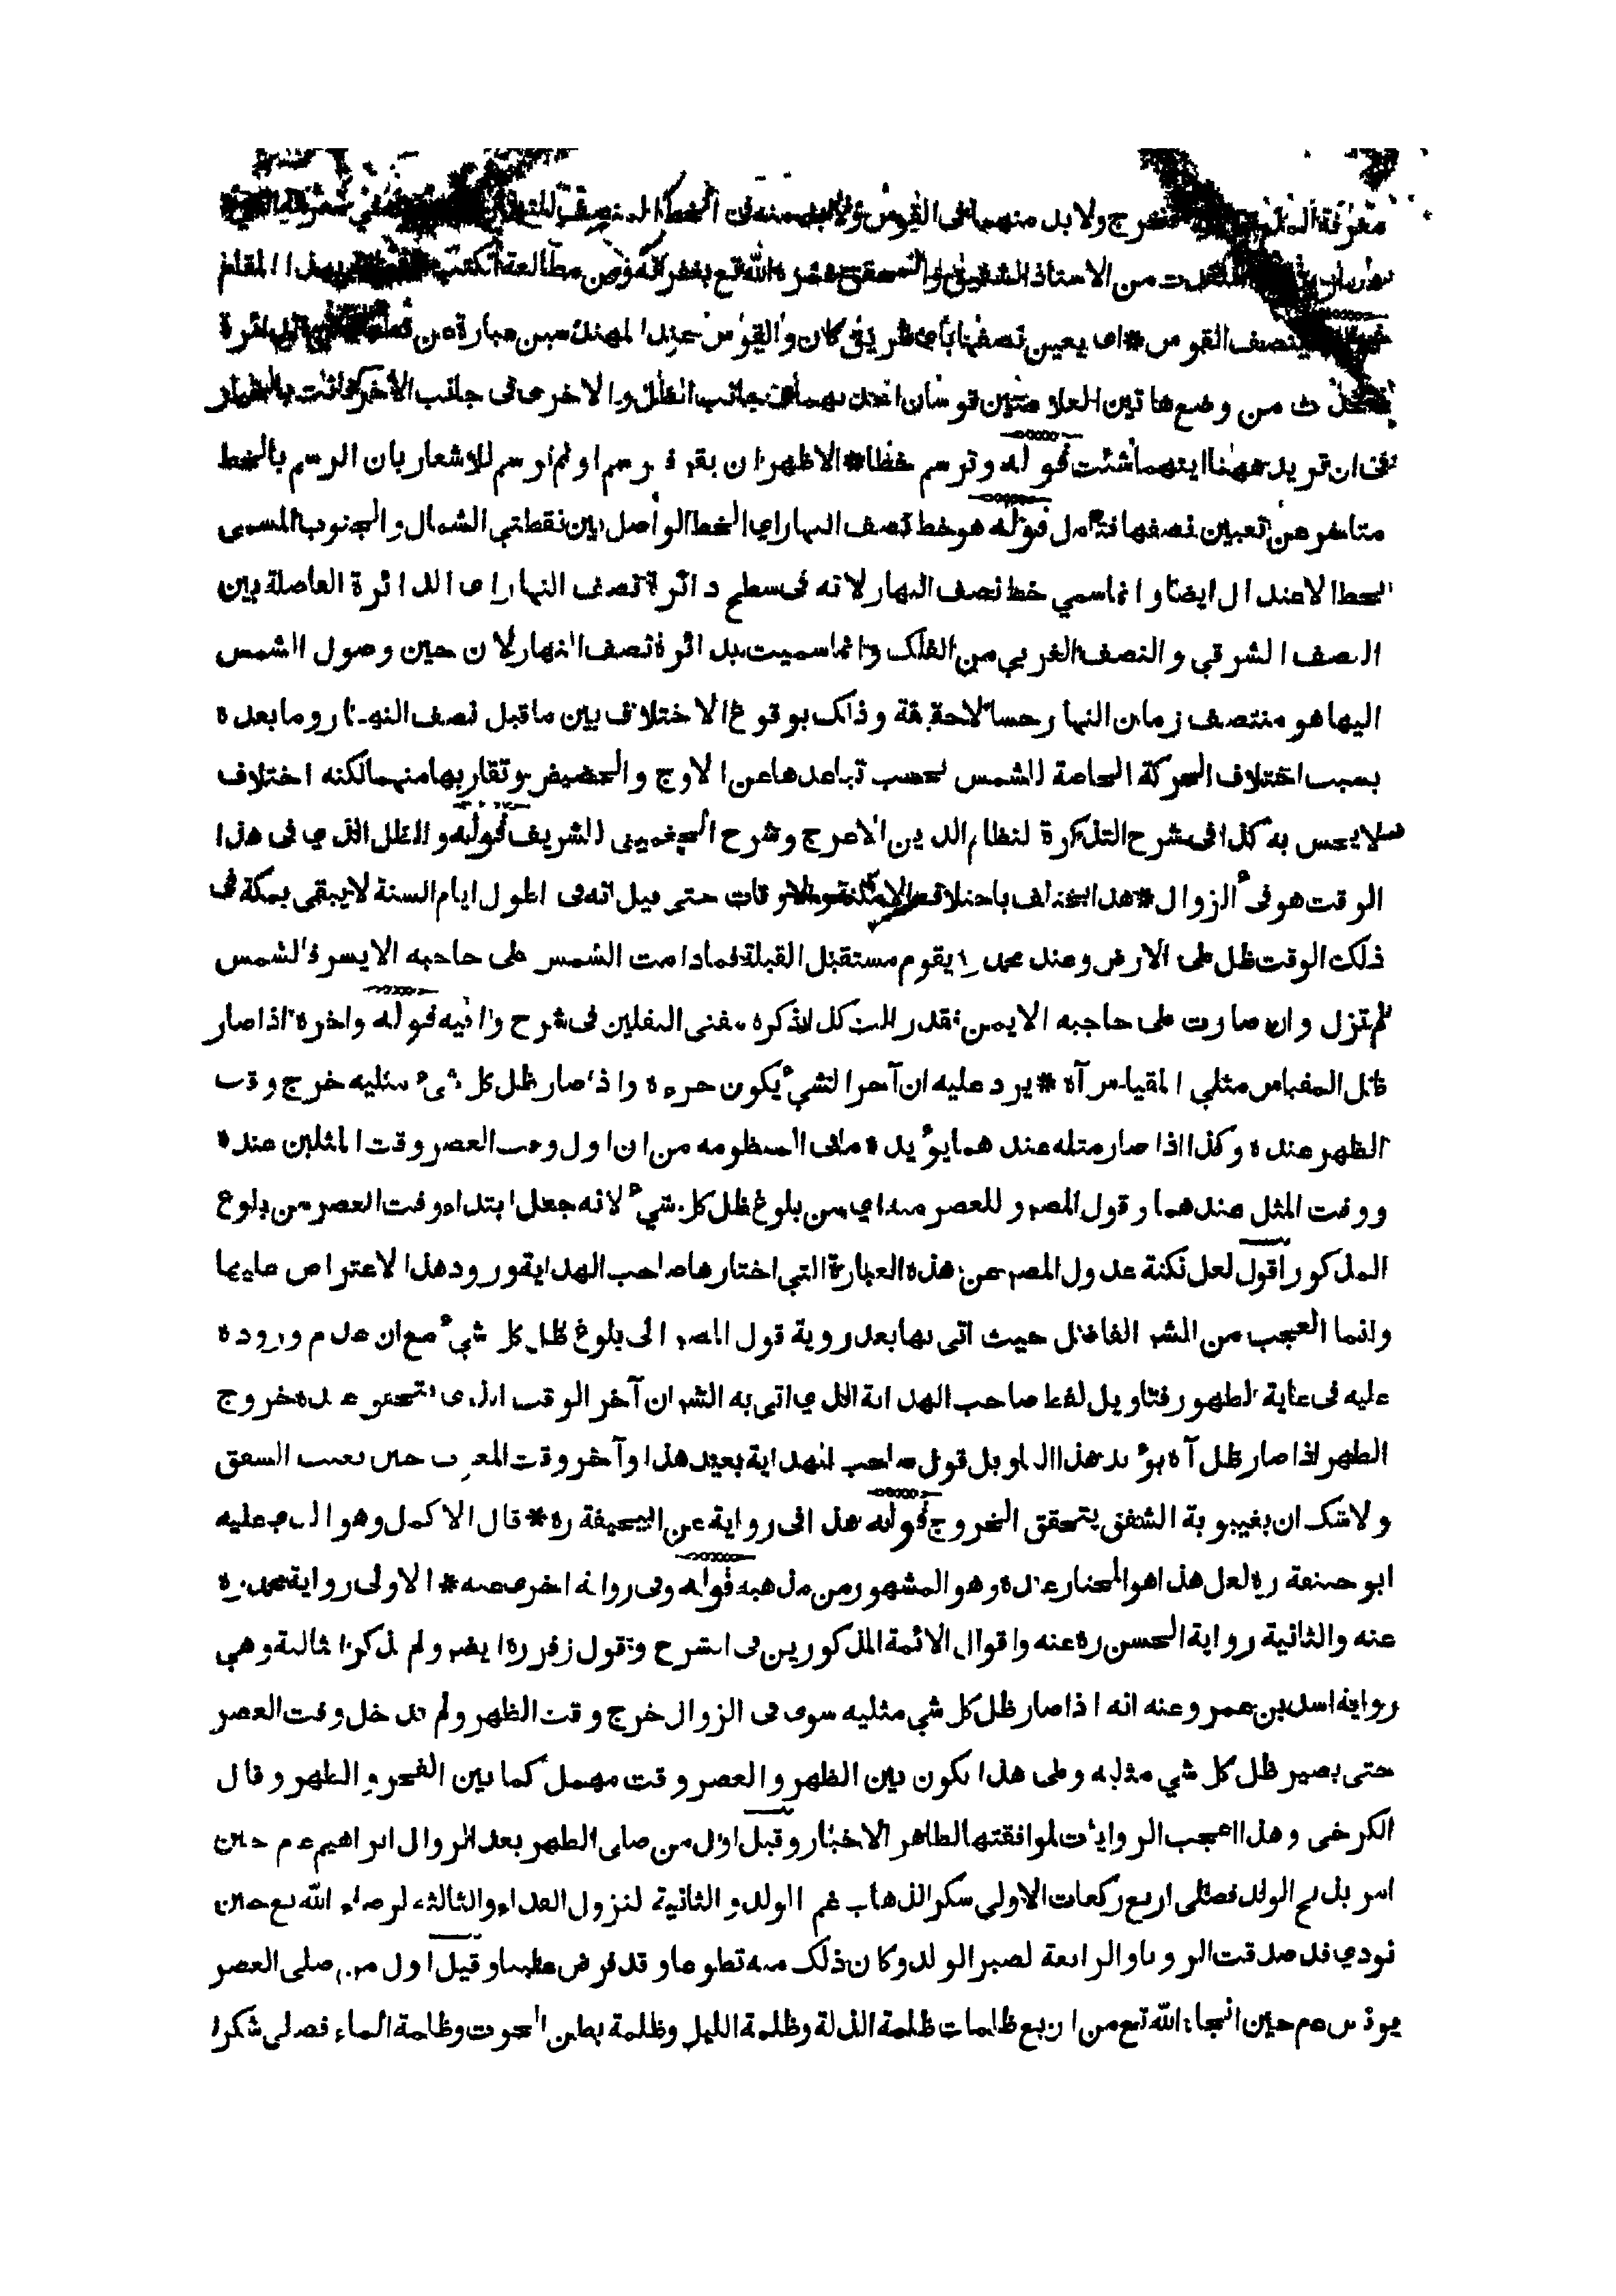 معرفة ولا بد منهما على القوس
من الاستاذ الشفيق الله تع بغفرانه ومن مطالعة الكتب بهذا المقام
ينصف القوس * اى يعين نصفها بأى طريق كان والقوس عند المهندسين عبارة من
من وضع هاتين العلامتين قوسان والاخرى فى جانب الآخر
فى ان تريد ههنا ايتهما شئت قوله وترسم خطا * الاظهر ان بقرء رسم او ثم ارسم للاشعار بان الرسم بالخط
متاخر عن تعيين نصفها فتأمل قوله هو خط نصف النهار اي الخط الواصل بين نقطتي الشمال والجنوب المسمى
الخط الاعتدال ايضا وانما سمي خط نصف النهار لانه فى سطح دائرة نصف النهار اى الدائرة الفاصلة بين
النصف الشرقي والنصف الغربي من الفلك وانما سميت بدائرة نصف النهار لان حين وصول الشمس
اليها هو منتصف زمان النهار حسا لا حقيقة وذلك بوقوع الاختلاف بين ما قبل نصف النهار وما بعده
بسبب اختلاف الحركة الخاصة للشمس بحسب تباعدها عن الاوج والحضيض وتقاربها منهما لكنه اختلاف
لا يحس به كذا فى شرح التذكرة لنظام الدين الاعرج وشرح الچغمينى للشريف قوله والظل الذي فى هذا
الوقت هو فىء الزوال * هذا يختلف باختلاف الامكنة والاوقات حتى قيل انه فى اطول ايام السنة لا يبقى بمكة فى
ذلك الوقت ظل على الارض وعند محمد ره يقوم مستقبل القبلة فما دامت الشمس على حاجبه الايسر فالشمس
لم تزل وان صارت على حاجبه الايمن فقد زالت كذا ذكره مفتى الثقلين فى شرح وافيه قوله واخره اذا صار
ظل المقياس مثلي المقياس آه * يرد عليه ان آخر الشيء يكون جزءه واذا صار ظل كل شىء مثليه خرج وقت
الظهر عنده وكذا اذا صار مثله عندهما يؤيده ما فى المنظومه من ان اول وقت العصر وقت المثلين عنده
ووقت المثل عندهما وقول المص وللعصر منه اي من بلوغ ظل كل شيء لانه جعل ابتداء وقت العصر من بلوغ
المذكور اقول لعل نكتة عدول المص عن هذه العبارة التي اختارها صاحب الهداية ورود هذا الاعتراض عليها
وانما العجب من الشر الفاضل حيث اتى بها بعد روية قول المص الى بلوغ ظل كل شيء مع ان عدم وروده
عليه فى غاية الظهور فتاويل لفظ صاحب الهداية الذي اتى به الشر ان آخر الوقت الذى يتحقق عنده خروج
الظهر اذا صار ظل آه يؤيد هذا التاويل قول صاحب الهداية بعيد هذا وآخر وقت المغرب حين يغيب الشفق
ولا شك ان بغيبوبة الشفق يتحقق الخروج قوله هذا فى رواية عن ابيحنيفة ره * قال الاكمل وهو الذى عليه
ابو حنيفة ره لعل هذا هو المختار عنده وهو المشهور من مذهبه قوله وفى رواية اخرى عنه * الاولى رواية محمد ره
عنه والثانية رواية الحسن ره عنه واقوال الائمة المذكورين فى الشرح وقول زفر ره ايضر ولم يذكر الثالثة وهي
رواية اسد بن عمرو عنه انه اذا صار ظل كل شي مثليه سوى فى الزوال خرج وقت الظهر ولم يدخل وقت العصر
حتى يصير ظل كل شي مثليه وعلى هذا يكون بين الظهر والعصر وقت مهمل كما بين الفجر والظهر وقال
الكرخى وهذا اعجب الروايات لموافقتها لظاهر الاخبار وقيل اول من صلى الظهر بعد الزوال ابراهيم ع م حين
امر بذبح الولد فصلى اربع ركعات الاولى سكرا لذهاب غم الولد والثانية لنزول الفداء والثالثة لرضاء الله تع حين
نودي قد صدقت الرويا والرابعة لصبر الولد وكان ذلك منه تطوعا وقد فرض علينا وقيل اول من صلى العصر
يونس عم حين انجاء الله تع من اربع ظلمات ظلمة الذلة وظلمة الليل وظلمة بطن الحوت وظلمة الماء فصلى شكرا